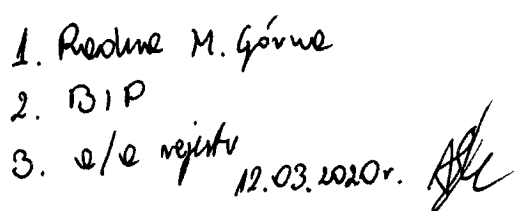 1. Radna M. Górna
2. BIP
3. a/a rejestr
12.03.2020r.